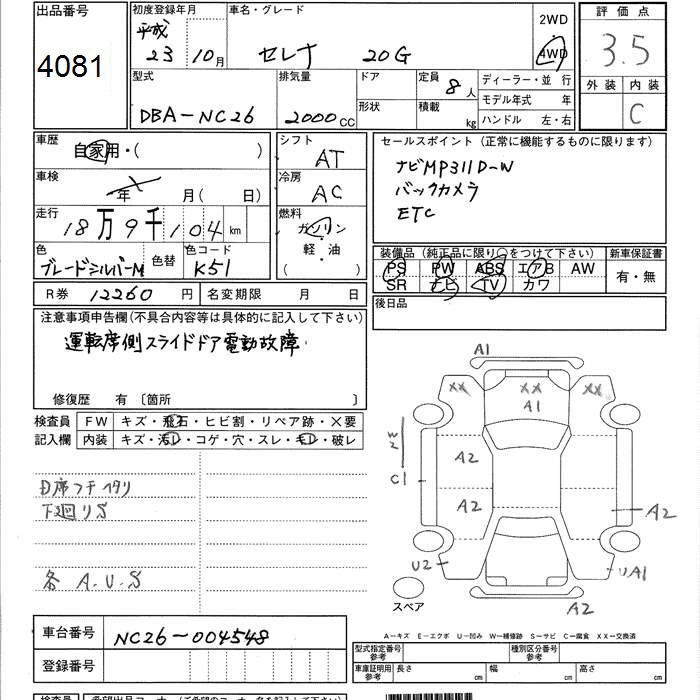 出品番号 初度登録年月 車名・グレード 2WD 評価点
4081 平成 23 10月 セレナ 20G 4WD 3.5
型式 排気量 ドア 定員 8人 ディーラー・並 行 外装 内装
DBA-NC26 2000CC 形状 積載 kg モデル年式 年 C
ハンドル 左・右
車歴 自家用・( ) シフト AT セールスポイント (正常に機能するものに限ります)
車検 年 月( 日) 冷房 AC ナビMP311D-W
バックカメラ
走行 18万9千104km 燃料 ガソリン ETC
軽・油
( )
色 ブレードシルバーM 色替 色コード K51 装備品 (純正品に限り○をつけて下さい) 新車保証書
PS PW ABS エアB AW 有・無
SR ナビ TV カワ
R券 12260 円 名変期限 月 日 後日品
注意事項申告欄(不具合内容等は具体的に記入して下さい)
運転席側スライドドア電動故障
修復歴 有 〔箇所 〕
検査員 FW キズ・飛石・ヒビ割・リペア跡・X要
記入欄 内装 キズ・汚レ・コゲ・穴・スレ・モレ・破レ
下廻リS
各 A.U.S
A1
XX XX XX
A1
A2
C1
A2
A2
U2 UA1
スペア A2
車台番号 NC26-004548
A-キズ E-エクボ U-凹み W-補修跡 S-サビ C-腐食 XX-交換済
登録番号 型式指定番号 参考 種別区分番号 参考
車庫証明用 参考 長さ cm 幅 cm 高さ cm